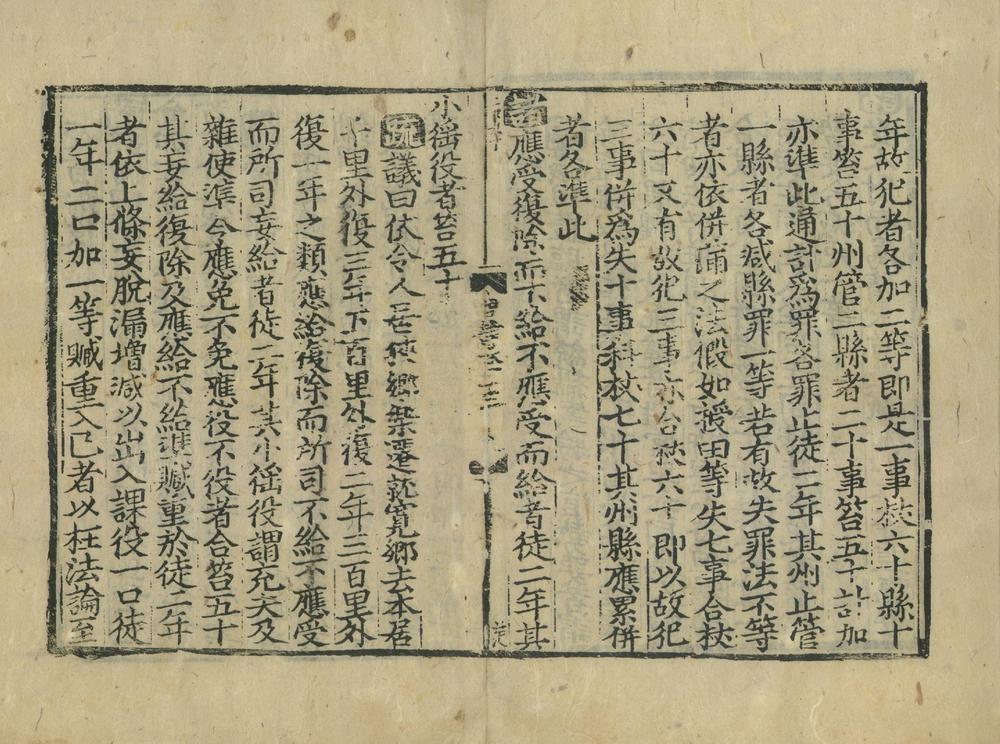 年故犯者各加二等即是一事杖六十縣十
事笞五十州管二縣者二十事笞五十計加
亦準此通計爲罪各罪止徒二年其州止管
一縣者各减縣罪一等若有故失罪法不等
者亦依併滿之法假如授田等失七事合杖
六十又有故犯三事亦合杖六十即以故犯
三事併爲失十事科杖七十其州縣應累併
者各準此
諸應受復除而不給不應受而給者徒二年其
小徭役者笞五十
疏議曰依令人居狹鄉樂遷就寬鄉去本居
千里外復三年五百里外復二年三百里外
復一年之類應給復除而所司不給不應受
而所司妄給者徒二年其小徭役謂充夫及
雜使準令應免不免應役不役者合笞五十
其妄給復除及應給不給準贓重於徒二年
者依上條妄脫漏增減以出入課役一口徒
一年二口加一等贓重入己者以枉法論至